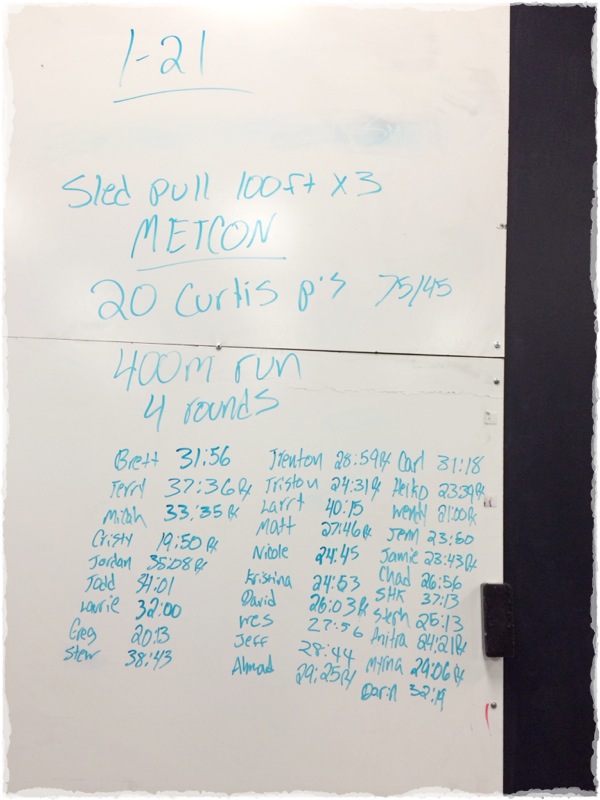 1-21
Sled pull 100ft x 3
METCON
20 Curtis p's 75/45
400m run
4 rounds
Brett 31:56
Terry 37:36 Rx
Micah 33:35 Rx
Cristy 19:50 Rx
Jordan 35:08 Rx
Todd 34:01
Laurie 32:00
Greg 20:13
Stew 38:43
Trenton 28:59 Rx
Triston 24:31 Rx
Larry 40:15
Matt 27:46 Rx
Nicole 24:45
Kristina 24:53
David 26:03 Rx
Wes 27:56
Jeff 28:44
Ahmad 29:25 Rx
Carl 31:18
Heiko 23:39 Rx
Wendy 21:00 Rx
Jenn 23:50
Jamie 23:43 Rx
Chad 26:56
SHK 37:13
Steph 25:13
Anitra 24:21 Rx
Myrna 29:06 Rx
Darin 32:19